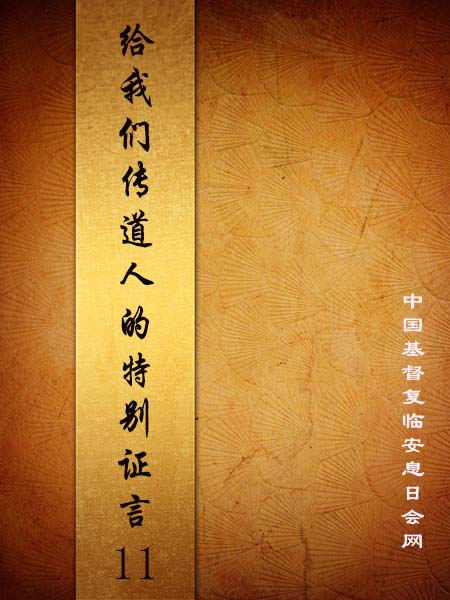 给我们传道人的特别证言11
中国基督复临安息日会网